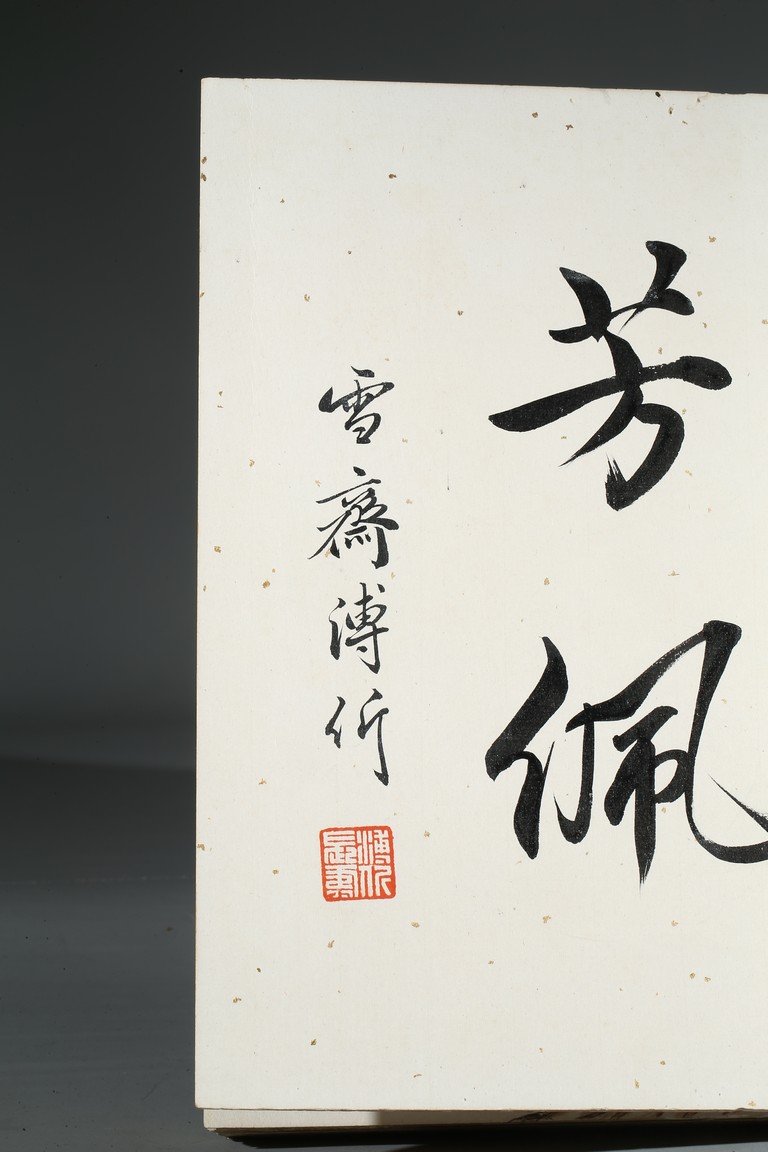 芳佩
雪齋溥伒
溥伒